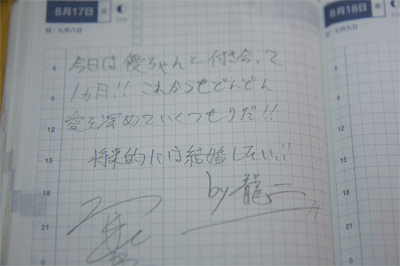 8月17日 火
8月18日 水
6
今日は優ちゃんと付き合って
9
1ヵ月!! これからもどんどん
12
愛を深めていくつもりだ!!
15
将来的には結婚したい!!
18
by 龍二
21